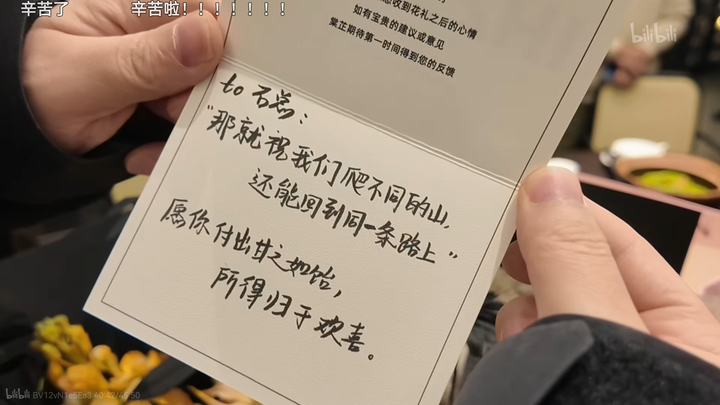 辛苦了
辛苦啦！！！！！！！
收到花礼之后的心情
如有宝贵的建议或意见
棠芷期待第一时间得到您的反馈
bilibili
to 石蕊：
“那就祝我们爬不同的山，
还能回到同一条路上”
愿你付出甘之如饴，
所得归于欢喜。
bilibili BV12vN1e5Ea3 40:42/46:50